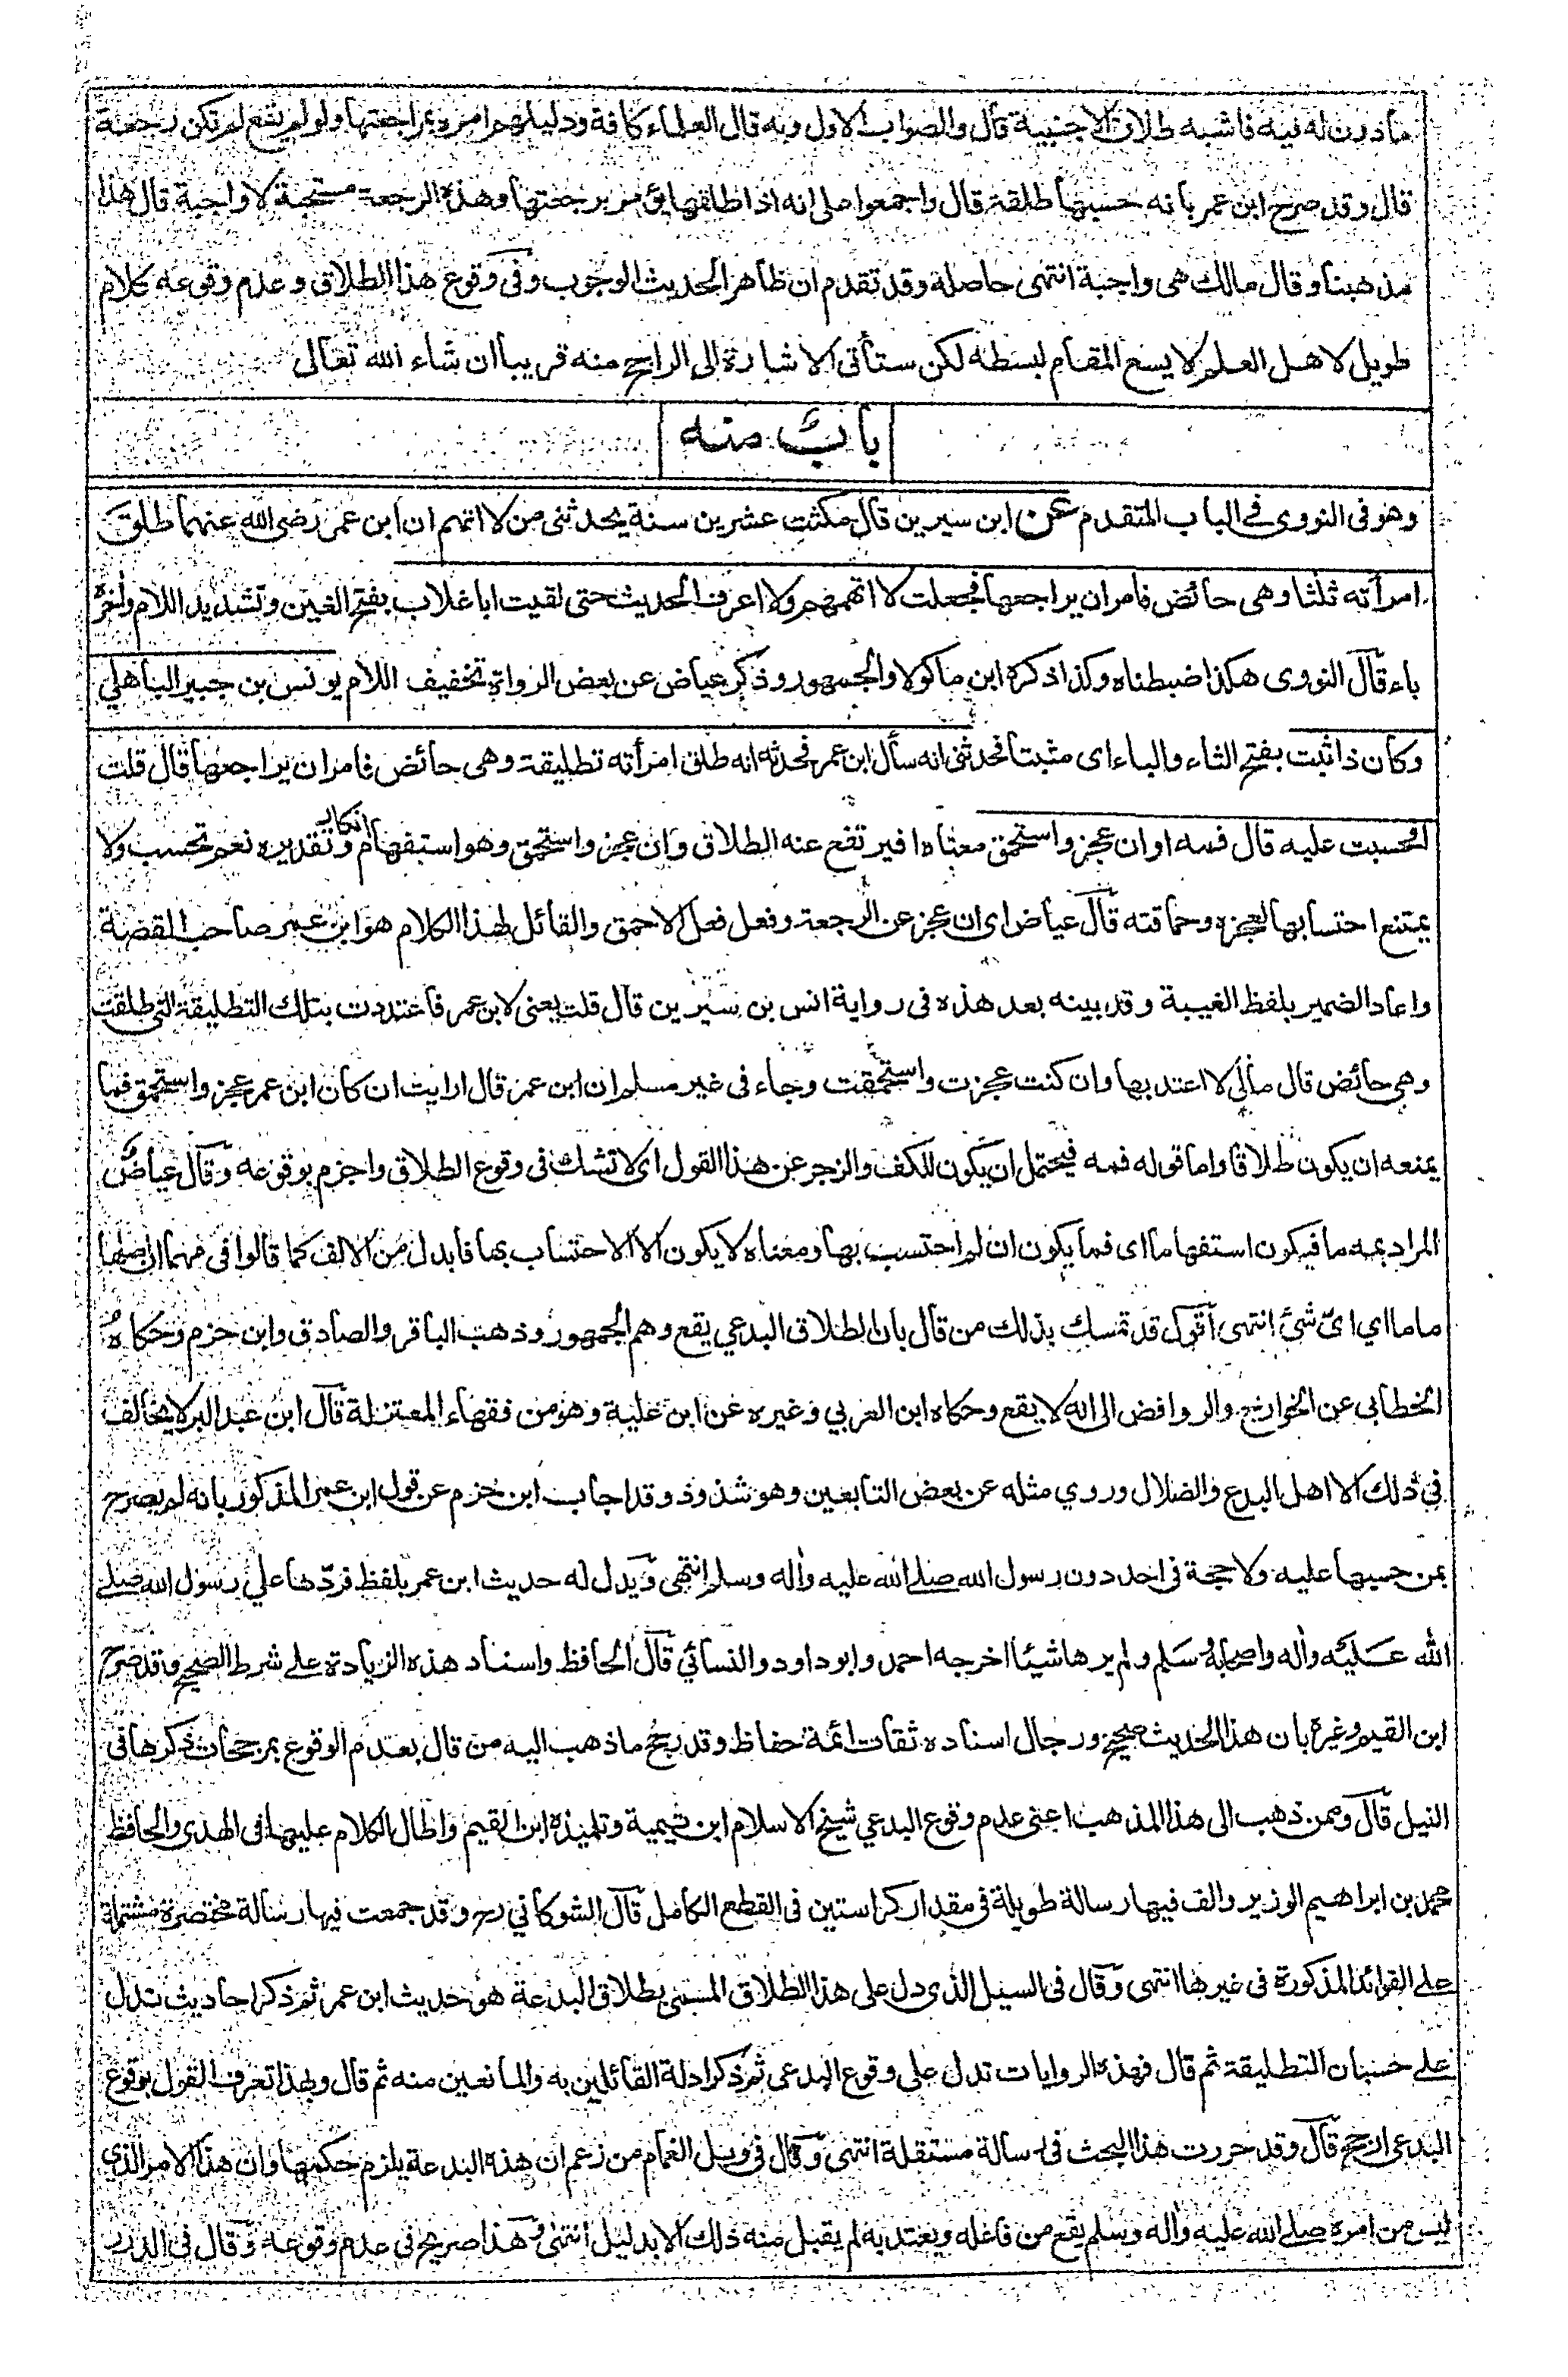 مأذون له فيه فاشبه طلاق الاجنبية قال والصواب الاول وبه قال العلماء كافة ودليلهم امره بمراجعتها ولو لم يقع لم تكن رجعة
قال وقد صرح ابن عمر بانه حسبها طلقة قال واجمعوا على انه اذا طلقها يؤمر برجعتها وهذه الرجعة مستحبة لا واجبة قال هذا
مذهبنا وقال مالك هي واجبة انتهى حاصله وقد تقدم ان ظاهر الحديث الوجوب وفي وقوع هذا الطلاق وعدم وقوعه كلام
طويل لاهل العلم لا يسع المقام لبسطه لكن ستأتى الاشارة الى الراجح منه قريبا ان شاء الله تعالى
باب منه
وهو فى النووى فى الباب المتقدم عن ابن سيرين قال مكثت عشرين سنة يحدثنى من لا اتهم ان ابن عمر رضى الله عنهما طلق
امرأته ثلثا وهى حائض فامر ان يراجعها فجعلت لا اتهمهم ولا اعرف الحديث حتى لقيت ابا غلاب بفتح الغين وتشديد اللام واخره
باء قال النووى هكذا ضبطناه وكذا ذكره ابن ماكولا والجمهور وذكر عياض عن بعض الرواة تخفيف اللام يونس بن جبير الباهلي
وكان ذا ثبت بفتح الثاء والباء اى مثبتا فحدثنى انه سأل ابن عمر فحدثه انه طلق امرأته تطليقة وهى حائض فامر ان يراجعها قال قلت
افحسبت عليه قال فمه او ان عجز واستحمق معناه افيرتفع عنه الطلاق وان عجز واستحمق وهو استفهام انكار وتقديره نعم تحسب ولا
يمتنع احتسابها لعجزه وحماقته قال عياض اى ان عجز عن الرجعة وفعل فعل الاحمق والقائل لهذا الكلام هو ابن عمر صاحب القصة
واعاد الضمير بلفظ الغيبة وقد بينه بعد هذه فى رواية انس بن سيرين قال قلت يعنى لابن عمر فاعتددت بتلك التطليقة التى طلقت
وهى حائض قال مالي لا اعتد بها وان كنت عجزت واستحمقت وجاء فى غير مسلم ان ابن عمر قال ارايت ان كان ابن عمر عجز واستحمق فما
يمنعه ان يكون طلاقا واما قوله فمه فيحتمل ان يكون للكف والزجر عن هذا القول اى لا تشك فى وقوع الطلاق واجزم بوقوعه وقال عياض
المراد بمه ما فيكون استفهاما اى فما يكون ان لم احتسب بها ومعناه لا يكون الا الاحتساب بها فابدل من الالف كما قالوا فى مهما ان اصلها
ماما اي اىّ شئ انتهى اقول قد تمسك بذلك من قال بان الطلاق البدعي يقع وهم الجمهور وذهب الباقر والصادق وابن حزم وحكاه
الخطابى عن الخوارج والروافض الى انه لا يقع وحكاه ابن العربي وغيره عن ابن علية وهو من فقهاء المعتزلة قال ابن عبد البر لا يخالف
في ذلك الا اهل البدع والضلال وروي مثله عن بعض التابعين وهو شذوذ وقد اجاب ابن حزم عن قول ابن عمر المذكور بانه لم يصرح
بمن حسبها عليه ولا حجة فى احد دون رسول الله صلى الله عليه واله وسلم انتهى ويدل له حديث ابن عمر بلفظ فردّها علي رسول الله صلى
الله عليه واله واصحابه وسلم ولم يرها شيئا اخرجه احمد وابو داود والنسائي قال الحافظ واسناد هذه الزيادة على شرط الصحيح وقد صرح
ابن القيم وغيره بان هذا الحديث صحيح ورجال اسناده ثقات ائمة حفاظ وقد رجح ما ذهب اليه من قال بعدم الوقوع بمرجحات ذكرها فى
النيل قال وممن ذهب الى هذا المذهب اعنى عدم وقوع البدعي شيخ الاسلام ابن تيمية وتلميذه ابن القيم واطال الكلام عليها فى الهدى والحافظ
محمد بن ابراهيم الوزير والف فيها رسالة طويلة فى مقدار كراستين فى القطع الكامل قال الشوكاني رح وقد جمعت فيها رسالة مختصرة مشتملة
على الفوائد المذكورة فى غيرها انتهى وقال فى السيل الذى دل على هذا الطلاق المسمى بطلاق البدعة هو حديث ابن عمر ثم ذكر احاديث تدل
على حسبان التطليقة ثم قال فهذه الروايات تدل على وقوع البدعى ثم ذكر ادلة القائلين به والمانعين منه ثم قال وبهذا تعرف القول بوقوع
البدعى ارجح قال وقد حررت هذا البحث فى رسالة مستقلة انتهى وقال فى وبل الغمام من زعم ان هذه البدعة يلزم حكمها وان هذا الامر الذى
ليس من امره صلى الله عليه واله وسلم يقع من فاعله ويعتد به لم يقبل منه ذلك الا بدليل انتهى وهذا صريح فى عدم وقوعه وقال فى الدرر